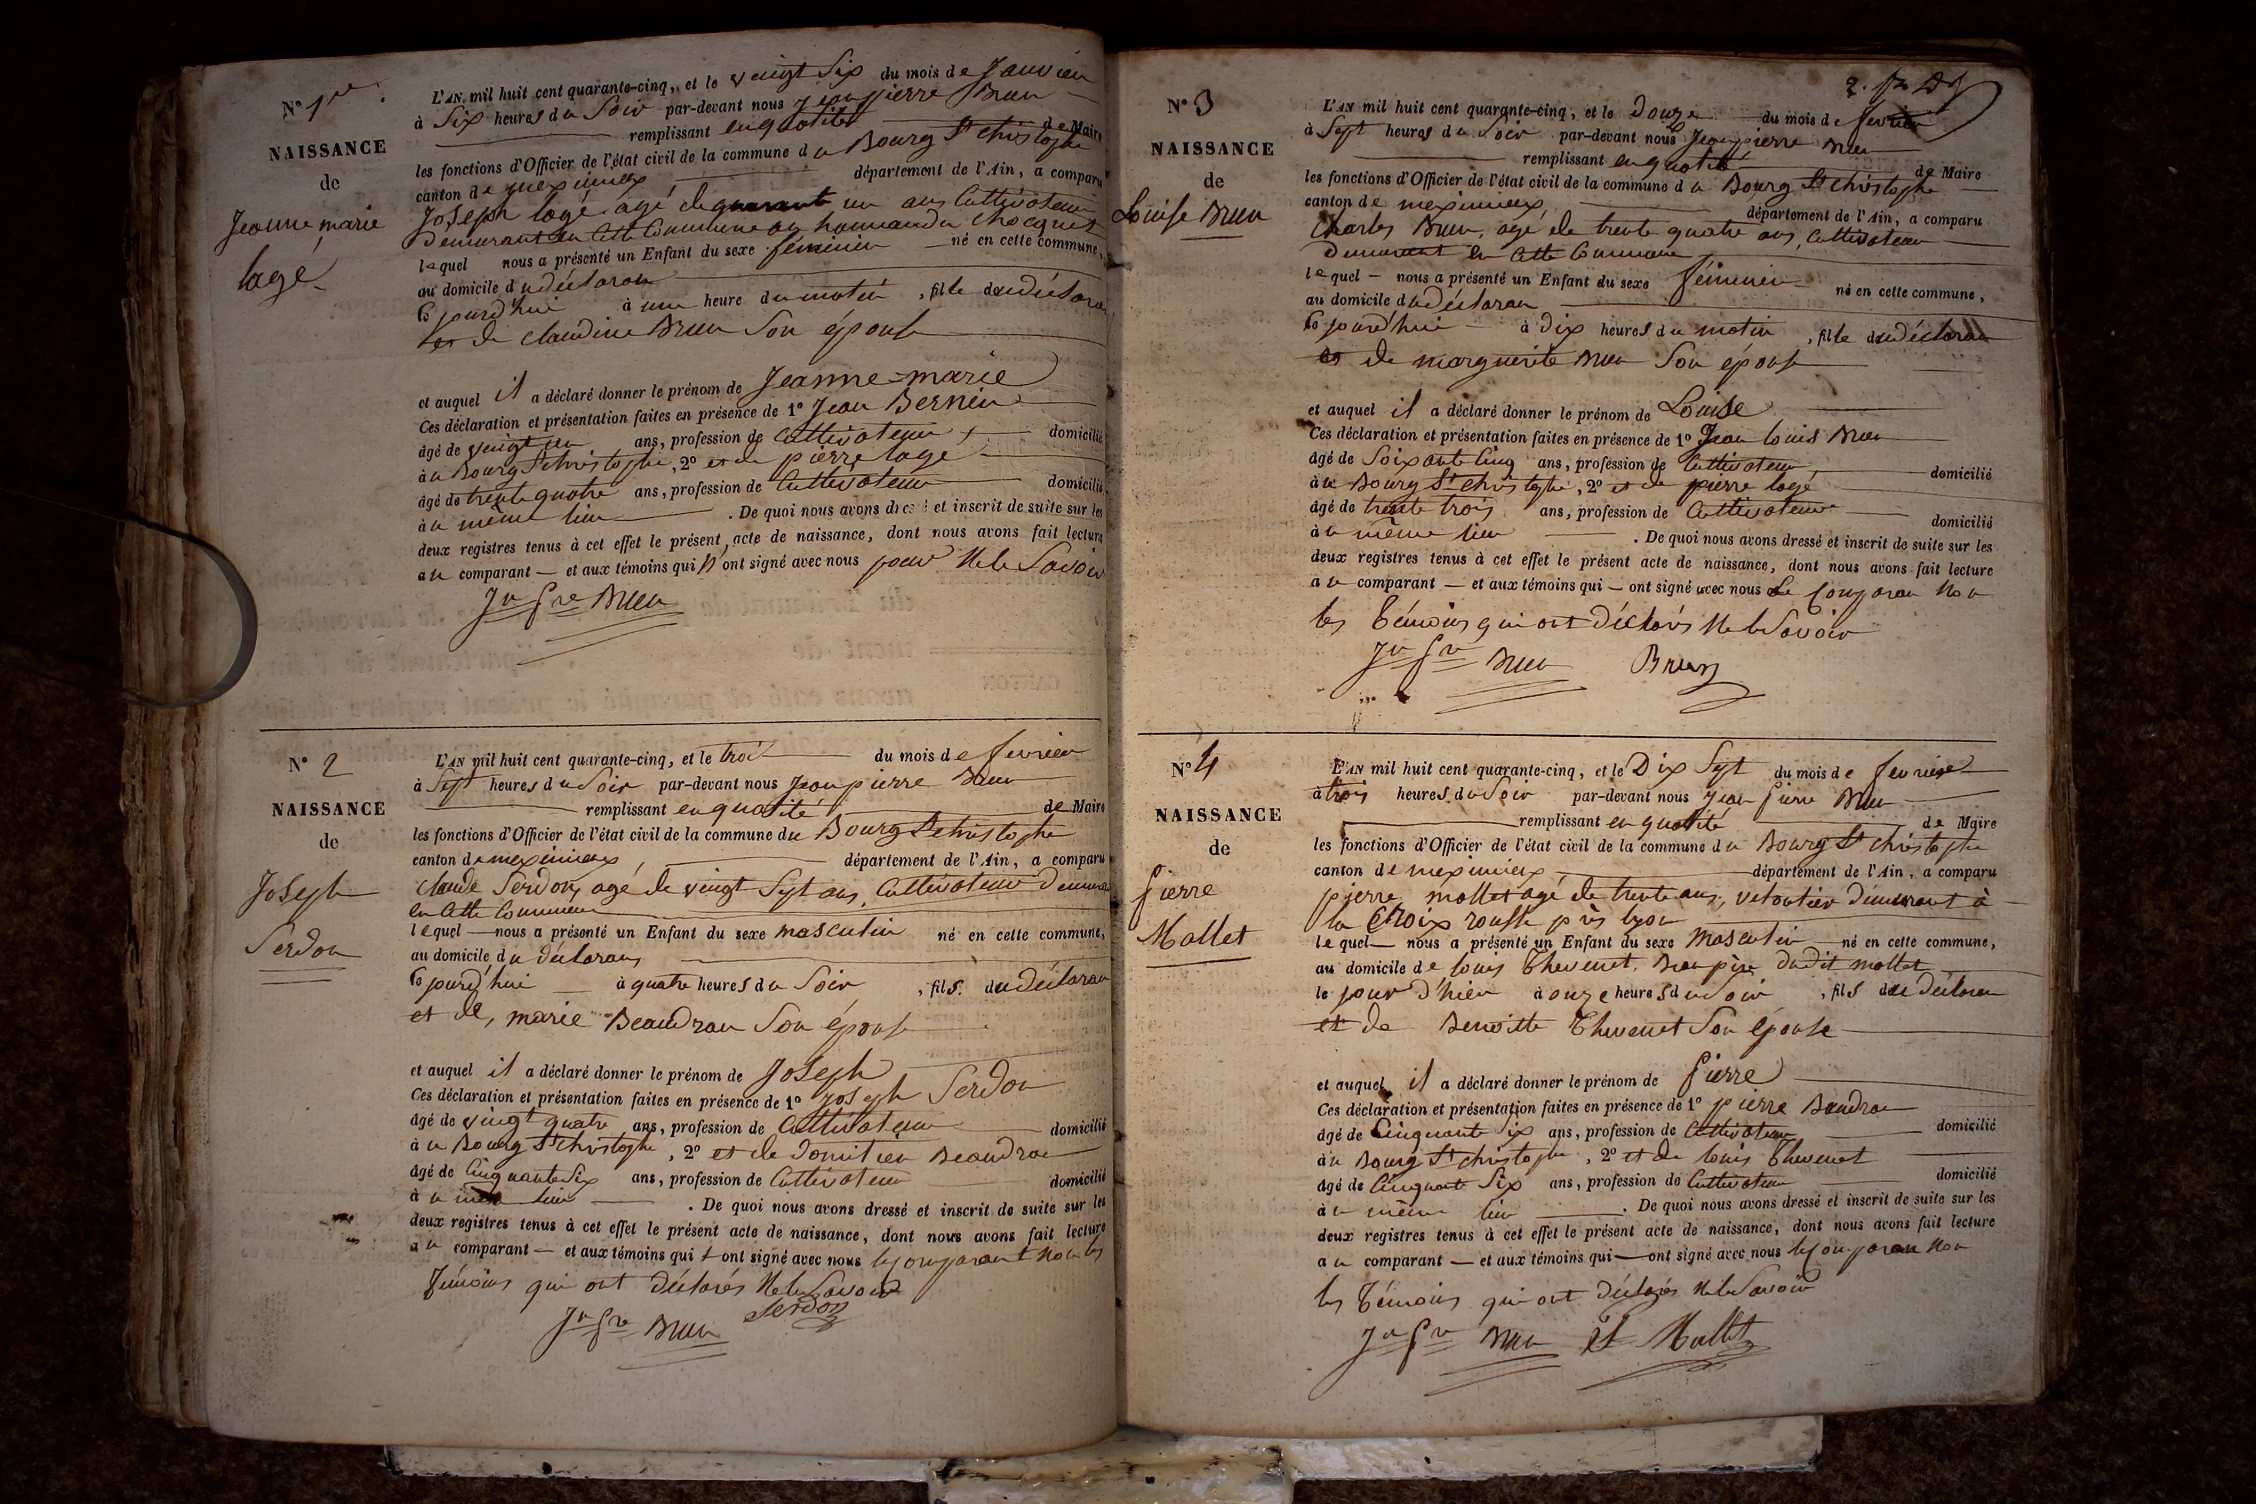 N° 1re
NAISSANCE
de
Jeanne marie
lagé
L'AN mil huit cent quarante-cinq, et le vingt Six du mois de Janvier
à Six heures du Soir par-devant nous Jean pierre Brun
remplissant en qualité de Maire
les fonctions d'Officier de l'état civil de la commune du Bourg St christophe
canton de meximieux département de l'Ain, a comparu
Joseph lagé agé de quarante un ans Cultivateur
Demeurant en Cette Commune au hameau du
lequel nous a présenté un Enfant du sexe féminin né en cette commune,
au domicile du déclarant
Ce jourd'hui à une heure du matin, fille du déclarant
et de claudine Brun Son épouse
et auquel il a déclaré donner le prénom de Jeanne-marie
Ces déclaration et présentation faites en présence de 1° Jean Bernin
âgé de vingt ans, profession de Cultivateur, domicilié
à u Bourg St christophe, 2° et de pierre lagé
âgé de trente quatre ans, profession de Cultivateur domicilié
à u même lieu. De quoi nous avons dressé et inscrit de suite sur les
deux registres tenus à cet effet le présent acte de naissance, dont nous avons fait lecture
au comparant — et aux témoins qui n'ont signé avec nous pour Ne le Savoir
Jn Pre Brun
N° 2
NAISSANCE
de
Joseph
Serdon
L'AN mil huit cent quarante-cinq, et le trois du mois de fevrier
à Sept heures du Soir par-devant nous Jean pierre Brun
remplissant en qualité de Maire
les fonctions d'Officier de l'état civil de la commune du Bourg St christophe
canton de meximieux, département de l'Ain, a comparu
claude Serdon, agé de vingt Sept ans, Cultivateur Demeurant
en Cette Commune
lequel — nous a présenté un Enfant du sexe masculin né en cette commune,
au domicile du déclarant
Ce jourd'hui à quatre heures du Soir, fils du déclarant
et de, marie Beaudran Son épouse
et auquel il a déclaré donner le prénom de Joseph
Ces déclaration et présentation faites en présence de 1° Joseph Serdon
âgé de vingt quatre ans, profession de Cultivateur domicilié
à u Bourg St christophe, 2° et de Domitien Beaudran
âgé de Cinquante Six ans, profession de Cultivateur domicilié
à u même lieu. De quoi nous avons dressé et inscrit de suite sur les
deux registres tenus à cet effet le présent acte de naissance, dont nous avons fait lecture
au comparant — et aux témoins qui ont signé avec nous le comparant Non les
Témoins qui ont déclarés Ne le Savoir
Jn Pre Brun Serdon
2.
N° 3
NAISSANCE
de
Louise Brun
L'AN mil huit cent quarante-cinq, et le Douze du mois de fevrier
à Sept heures du Soir par-devant nous Jean pierre Brun
remplissant en qualité de Maire
les fonctions d'Officier de l'état civil de la commune du Bourg St christophe
canton de meximieux département de l'Ain, a comparu
Charles Brun, agé de trente quatre ans, Cultivateur
Demeurant en Cette Commune
lequel — nous a présenté un Enfant du sexe féminin né en cette commune,
au domicile du déclarant
Ce jourd'hui à Dix heures du matin, fille du déclarant
et de marguerite Brun Son épouse
et auquel il a déclaré donner le prénom de Louise
Ces déclaration et présentation faites en présence de 1° Jean louis Brun
âgé de Soixante Cinq ans, profession de Cultivateur, domicilié
à u Bourg St christophe, 2° et de pierre lagé
âgé de trente trois ans, profession de Cultivateur domicilié
à u même lieu. De quoi nous avons dressé et inscrit de suite sur les
deux registres tenus à cet effet le présent acte de naissance, dont nous avons fait lecture
au comparant — et aux témoins qui — ont signé avec nous Le Comparan Non
les Témoins qui ont Déclarés Ne le Savoir
Jn Pre Brun Brun
N° 4
NAISSANCE
de
Pierre
Mollet
L'AN mil huit cent quarante-cinq, et le Dix Sept du mois de fevrier
à trois heures du Soir par-devant nous Jean Pierre Brun
remplissant en qualité de Maire
les fonctions d'Officier de l'état civil de la commune du Bourg St christophe
canton de meximieux, département de l'Ain, a comparu
pierre mollet agé de trente ans, veloutier Demeurant à
la Croix rousse près lyon
lequel — nous a présenté un Enfant du sexe Masculin né en cette commune,
au domicile de louis Thevenet, Beau père dudit mollet
le jour d'hier à onze heures du Soir, fils du déclaran
et de Benoitte Thevenet Son Epouse
et auquel il a déclaré donner le prénom de Pierre
Ces déclaration et présentation faites en présence de 1° pierre Baudran
âgé de Cinquante Six ans, profession de Cultivateur domicilié
à u Bourg St christophe, 2° et de louis Thevenet
âgé de Cinquante Six ans, profession de Cultivateur domicilié
à u même lieu. De quoi nous avons dressé et inscrit de suite sur les
deux registres tenus à cet effet le présent acte de naissance, dont nous avons fait lecture
au comparant — et aux témoins qui — ont signé avec nous le Comparan Non
les Témoins qui ont Déclarés Ne le Savoir
Jn Pre Brun Mollet